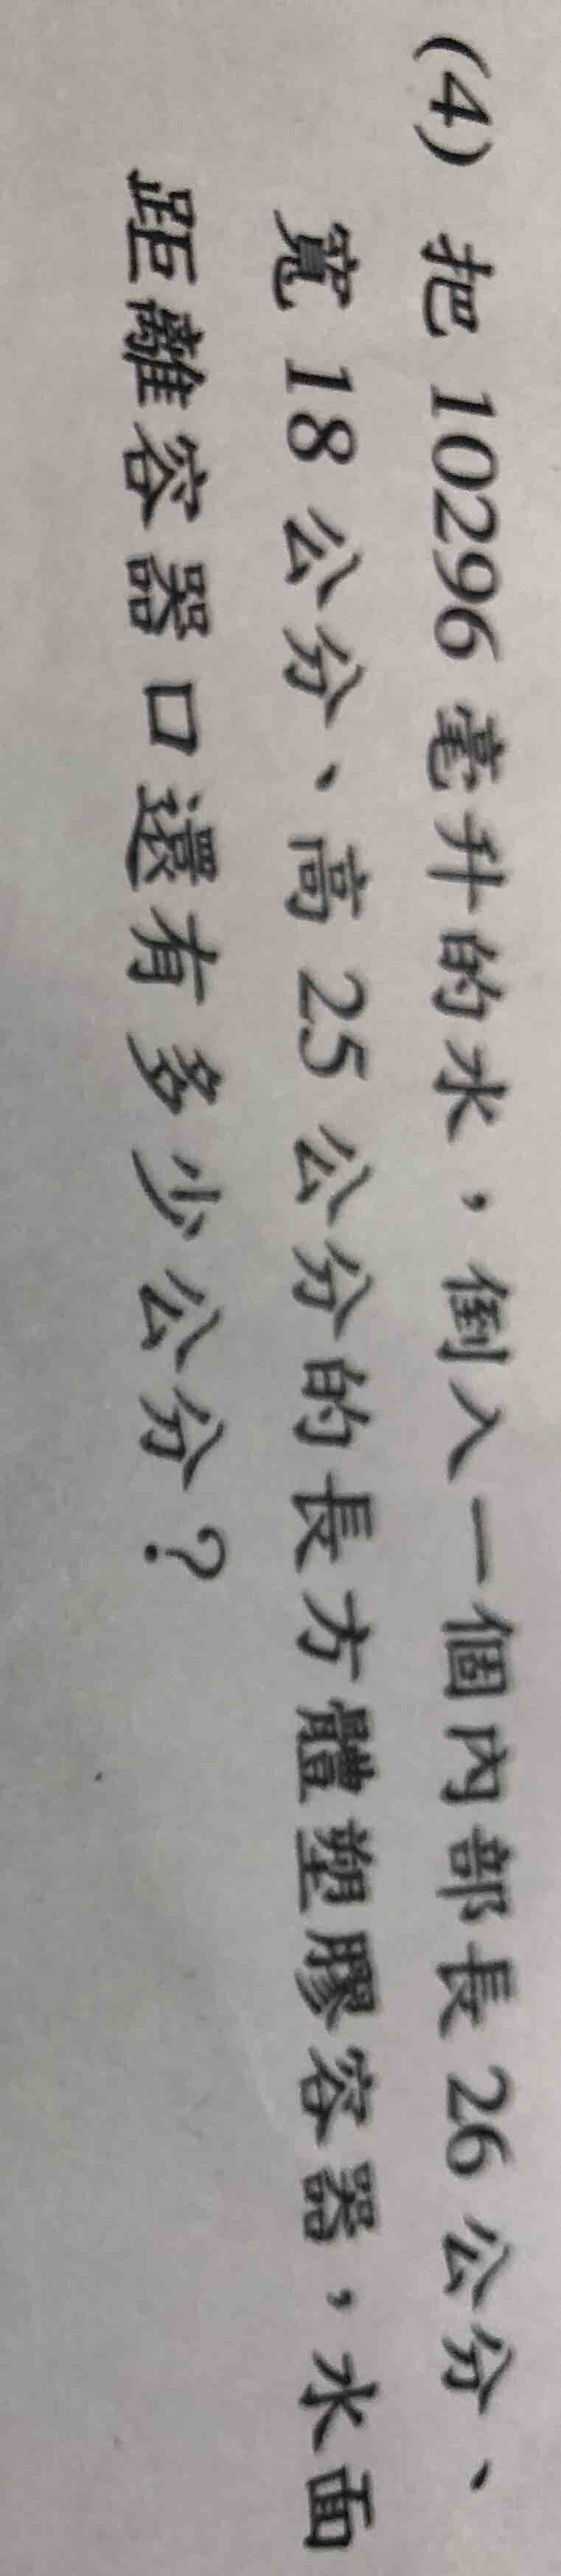 (4) 把 10296 毫升的水，倒入一個內部長 26 公分、
寬 18 公分、高 25 公分的長方體塑膠容器，水面
距離容器口還有多少公分？